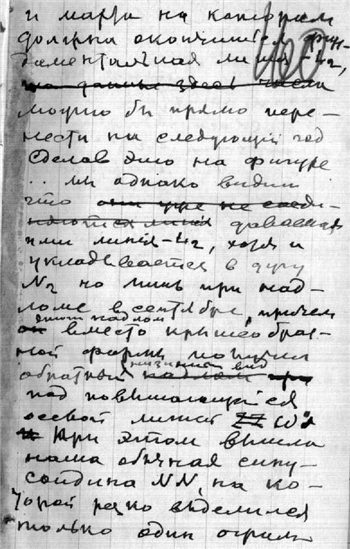 и марта на котором
должна окончиться фун-
даментальная линия - 42,
на данные здесь числа
можно бы прямо пере-
нести на следующий год
сделав это на фигуре
... мы однако видим
что они уже не соеди-
няются линия даваемая
ими линия - 42, хотя и
укладывается в дугу
N2 но лишь при над-
ломе в сентябре, причем
этот надлом
вместо крышеобраз-
ной формы получил
обратный низинный вид
над повышающейся
осевой линией
При этом вышла
наша обычная сину-
соидина NN, на ко-
торой резко выделился
только один